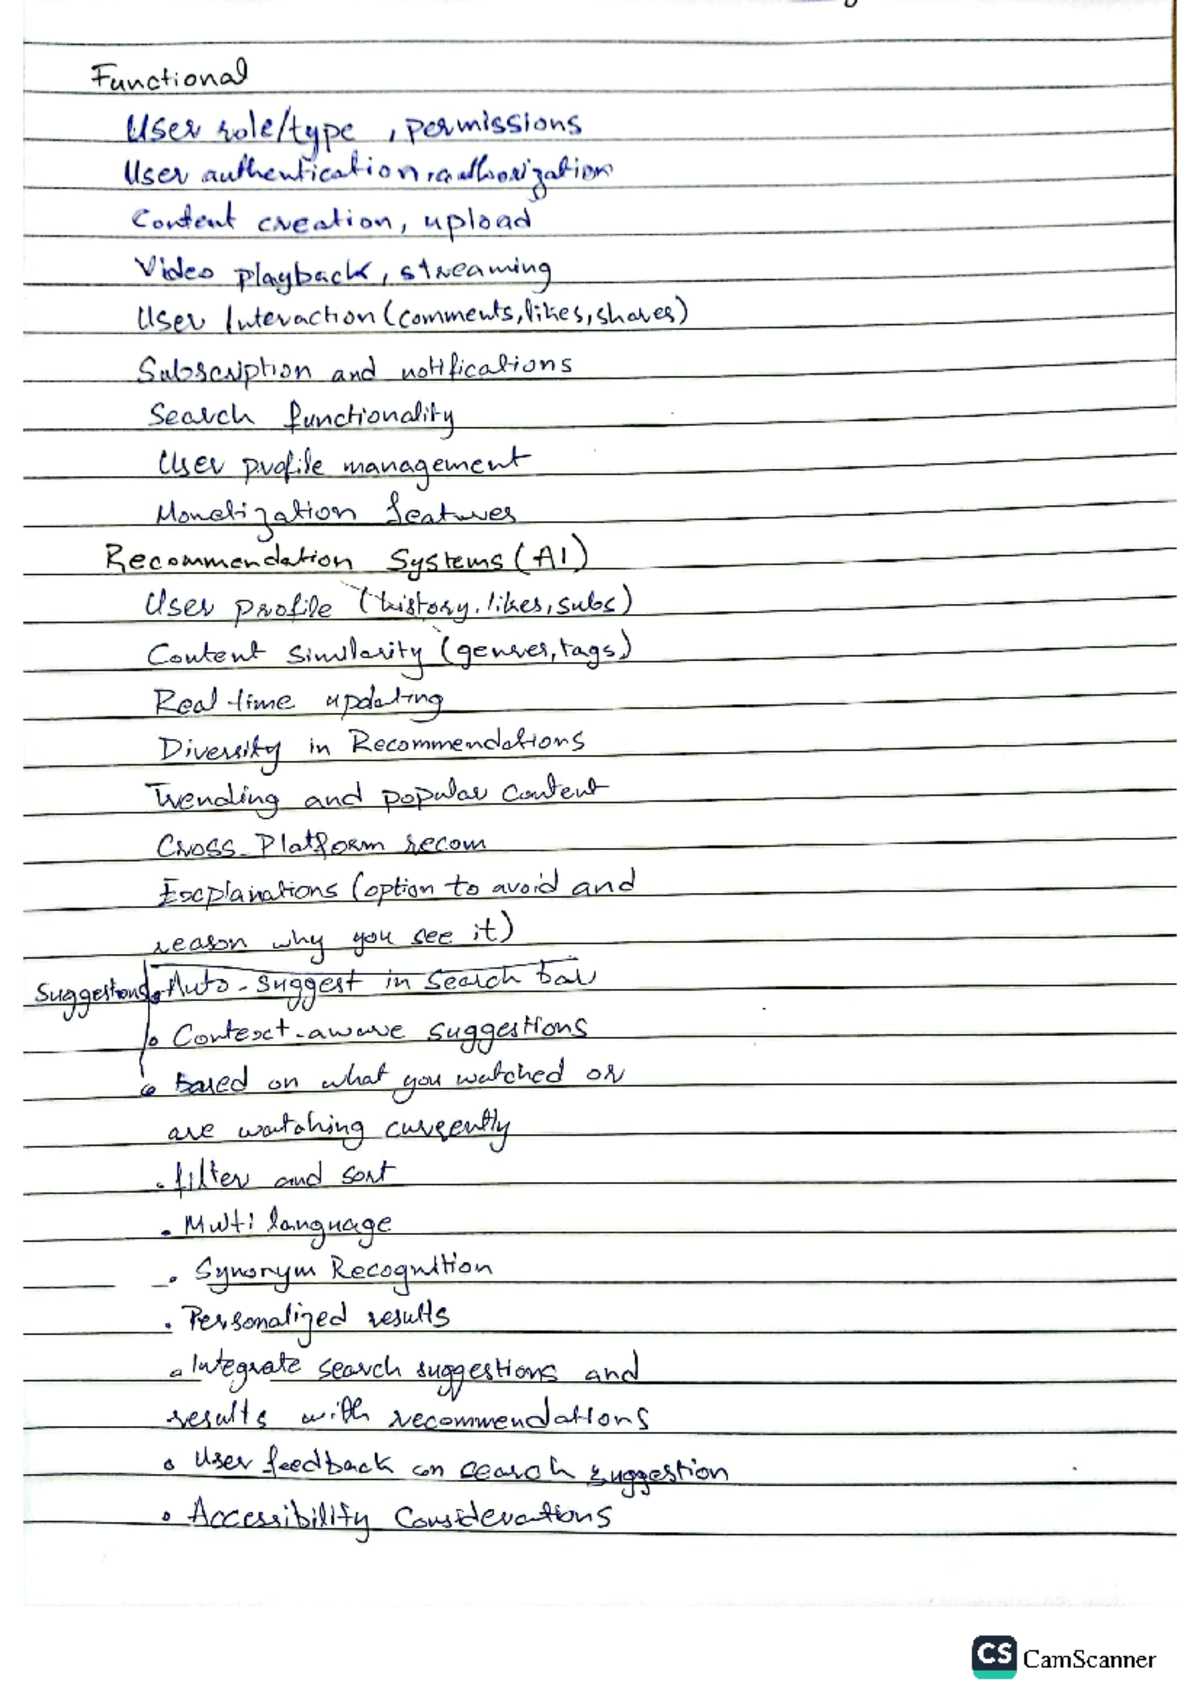 Functional
User role/type , permissions
User authentication, authorization
Content creation, upload
Video playback, streaming
User Interaction (comments, likes, shares)
Subscription and notifications
Search functionality
User profile management
Monetization features
Recommendation Systems (AI)
User profile (history, likes, subs)
Content similarity (genres, tags)
Real-time updating
Diversity in Recommendations
Trending and popular content
Cross-Platform recom
Explanations (option to avoid and
reason why you see it)
Suggestions Auto-suggest in search bar
Context-aware suggestions
Based on what you watched or
are watching currently
filter and sort
Multi language
Synonym Recognition
Personalized results
Integrate search suggestions and
results with recommendations
User feedback on search suggestion
Accessibility Considerations
CS CamScanner